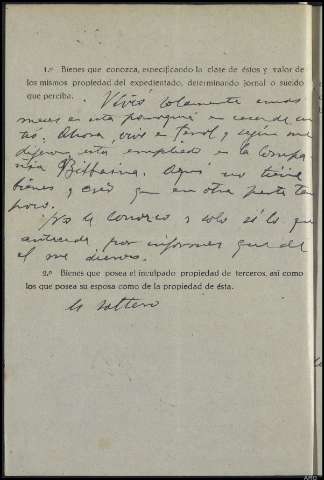 1.º Bienes que conozca, especificando la clase de éstos y valor de
los mismos propiedad del expedientado, determinando jornal o sueldo
que perciba. Vivió solamente unos
meses en esta parroquia en casa de un
tío. Ahora vive en Ferol y según me
dijeron está empleado en la Compa
ñía Bilbaina. Aquí no tiene
bienes y creo que en otra parte tam
poco.
No le conozco y solo sé lo que
antecede por informes que de
el me dieron.
2.º Bienes que posea el inculpado propiedad de terceros, así como
los que posea su esposa como de la propiedad de ésta.
Es soltero